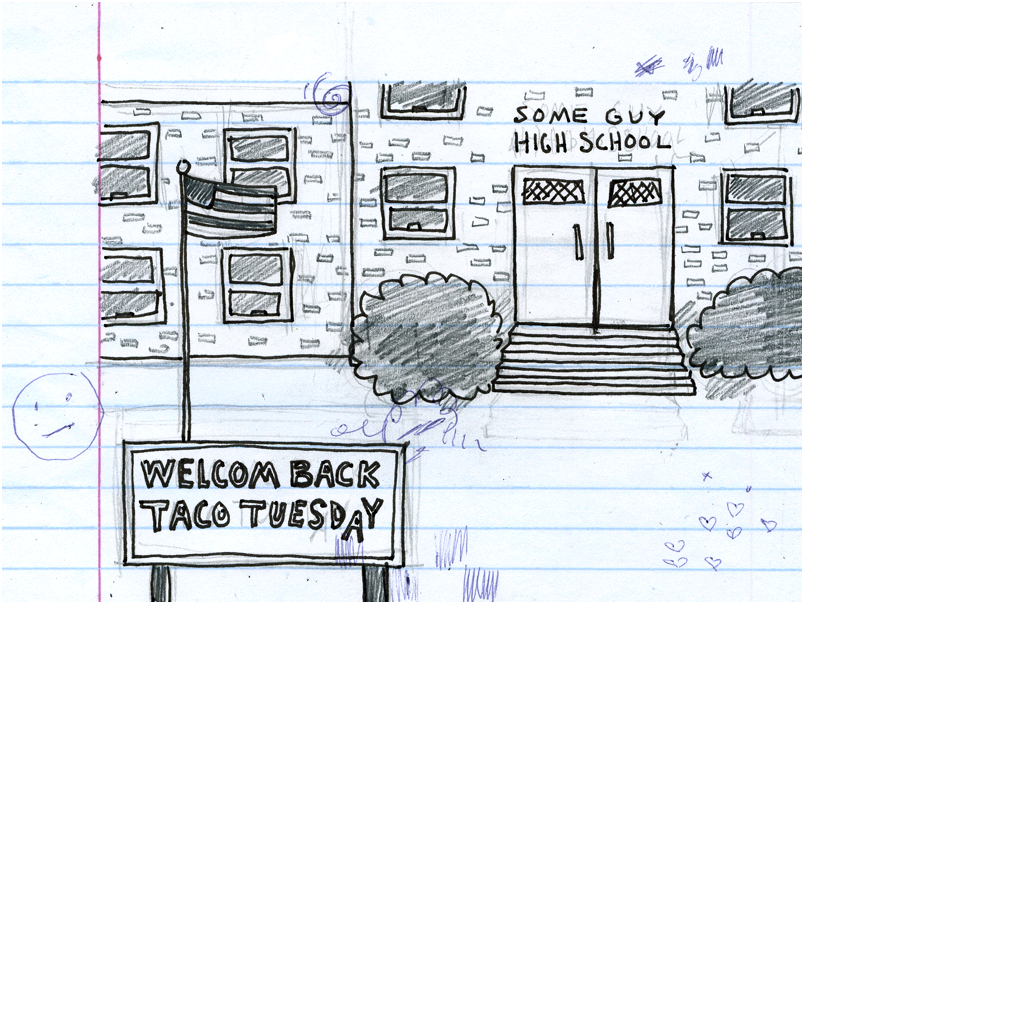 SOME GUY
HIGH SCHOOL
WELCOM BACK
TACO TUESDAY